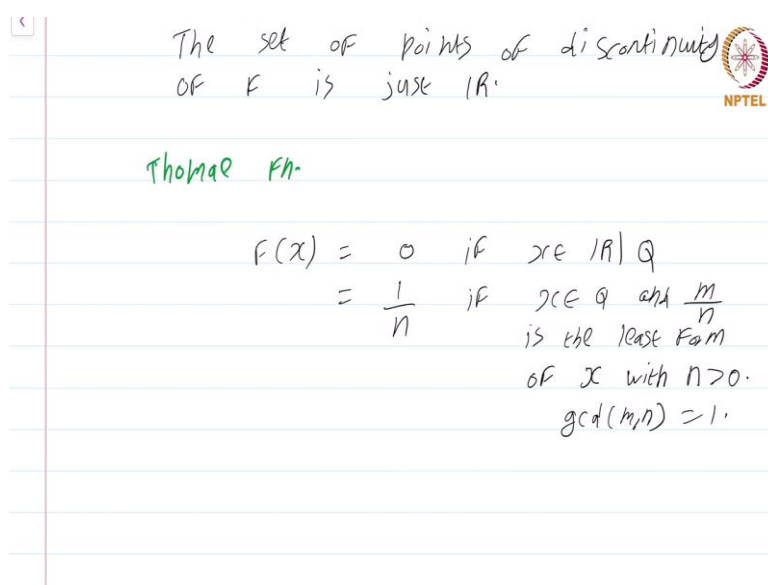 The set of points of discontinuity
of F is just ℝ.
NPTEL
Thomae Fn.
F(x) = 0 if x ∈ ℝ \ Q
= 1/n if x ∈ Q and m/n
is the least form
of x with n>0.
gcd(m,n) = 1.